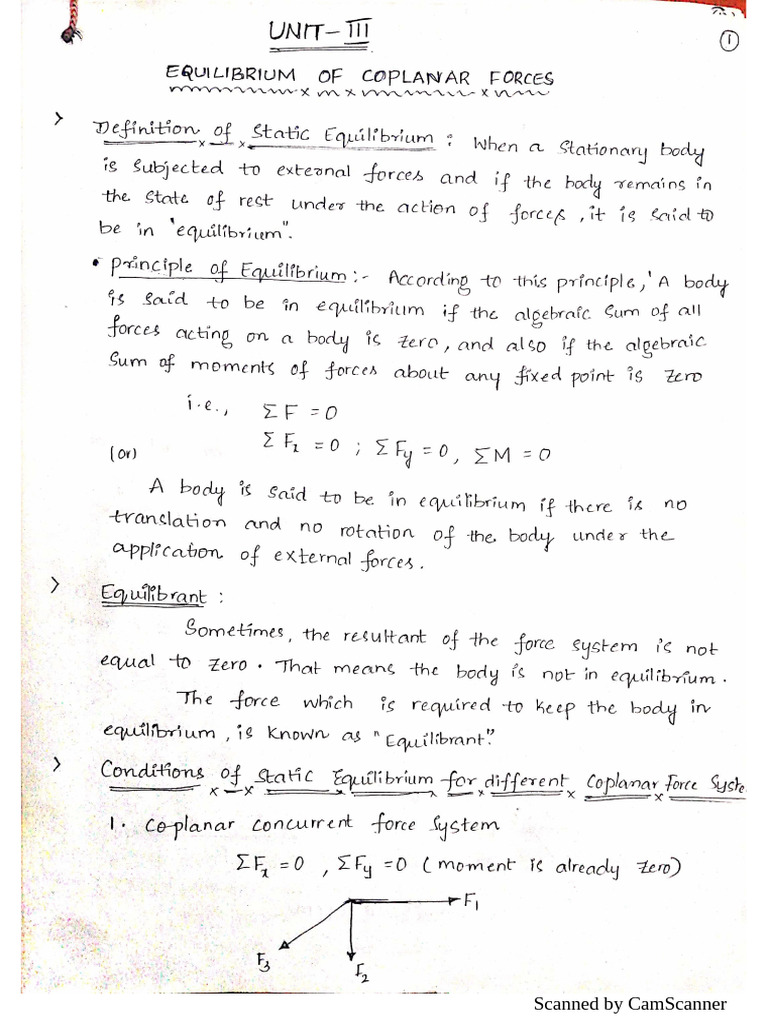 UNIT-III
1
EQUILIBRIUM OF COPLANAR FORCES
> Definition of Static Equilibrium : When a Stationary body
is subjected to external forces and if the body remains in
the state of rest under the action of forces, it is said to
be in "equilibrium".
• Principle of Equilibrium :- According to this principle, 'A body
is said to be in equilibrium if the algebraic sum of all
forces acting on a body is zero, and also if the algebraic
sum of moments of forces about any fixed point is zero
i.e., ΣF = 0
(or) ΣFx = 0 ; ΣFy = 0, ΣM = 0
A body is said to be in equilibrium if there is no
translation and no rotation of the body under the
application of external forces.
> Equilibrant :
Sometimes, the resultant of the force system is not
equal to zero. That means the body is not in equilibrium.
The force which is required to keep the body in
equilibrium, is known as "Equilibrant".
> Conditions of Static Equilibrium for different Coplanar Force Syste
1. Co-planar concurrent force system
ΣFx = 0 , ΣFy = 0 (moment is already zero)
F1
F3
F2
Scanned by CamScanner